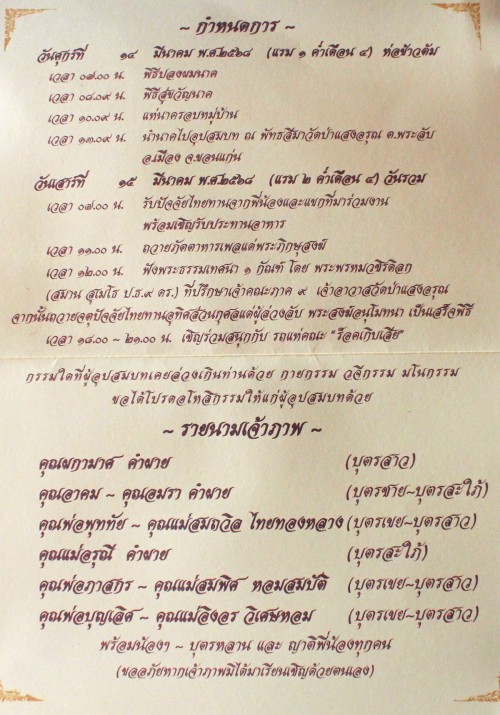 ~ กำหนดการ ~
วันศุกร์ที่ ๑๔ มีนาคม พ.ศ.๒๕๖๘ (แรม ๑ ค่ำเดือน ๔) ห่อข้าวต้ม
เวลา ๐๗.๐๐ น. พิธีปลงผมนาค
เวลา ๐๘.๐๙ น. พิธีสู่ขวัญนาค
เวลา ๑๐.๐๙ น. แห่นาครอบหมู่บ้าน
เวลา ๑๓.๐๙ น. นำนาคไปอุปสมบท ณ พัทธสีมาวัดป่าแสงอรุณ ต.พระลับ
อ.เมือง จ.ขอนแก่น
วันเสาร์ที่ ๑๕ มีนาคม พ.ศ.๒๕๖๘ (แรม ๒ ค่ำเดือน ๔) วันรวม
เวลา ๐๗.๐๐ น. รับปัจจัยไทยทานจากพี่น้องและแขกที่มาร่วมงาน
พร้อมเชิญรับประทานอาหาร
เวลา ๑๑.๐๐ น. ถวายภัตตาหารเพลแด่พระภิกษุสงฆ์
เวลา ๑๒.๐๐ น. ฟังพระธรรมเทศนา ๑ กัณฑ์ โดย พระพรหมวชิรดิลก
(สมาน สุเมโธ ป.ธ.๙ ดร.) ที่ปรึกษาเจ้าคณะภาค ๙ เจ้าอาวาสวัดป่าแสงอรุณ
จากนั้นถวายจตุปัจจัยไทยทานอุทิศส่วนกุศลแด่ผู้ล่วงลับ พระสงฆ์อนุโมทนา เป็นเสร็จพิธี
เวลา ๑๘.๐๐ ~ ๒๑.๐๐ น. เชิญร่วมสนุกกับ รถแห่คณะ "ร็อคเกิบเสี่ย"
กรรมใดที่ผู้อุปสมบทเคยล่วงเกินท่านด้วย กายกรรม วจีกรรม มโนกรรม
ขอได้โปรดอโหสิกรรมให้แก่ผู้อุปสมบทด้วย
~ รายนามเจ้าภาพ ~
คุณผกามาศ คำผาย (บุตรสาว)
คุณอาคม ~ คุณอมรา คำผาย (บุตรชาย~บุตรสะใภ้)
คุณพ่อพุททัย ~ คุณแม่สมถวิล ไทยทองหลาง (บุตรเขย~บุตรสาว)
คุณแม่อรุณี คำผาย (บุตรสะใภ้)
คุณพ่อภาสกร ~ คุณแม่สมพิศ หอมสมบัติ (บุตรเขย~บุตรสาว)
คุณพ่อบุญเลิศ ~ คุณแม่อิงอร วิเศษหอม (บุตรเขย~บุตรสาว)
พร้อมน้องๆ ~ บุตรหลาน และ ญาติพี่น้องทุกคน
(ขออภัยหากเจ้าภาพมิได้มาเรียนเชิญด้วยตนเอง)